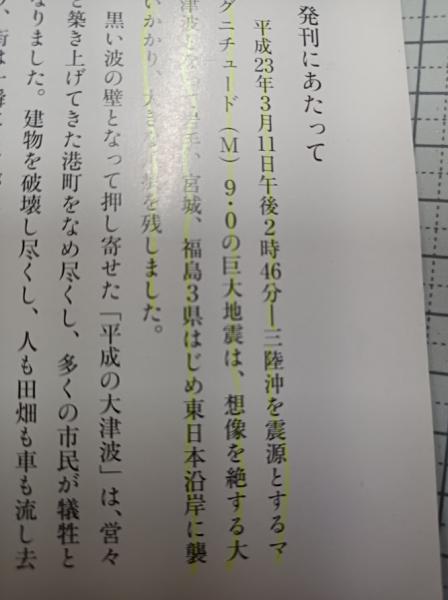 発刊にあたって
平成23年3月11日午後2時46分―三陸沖を震源とするマ
グニチュード（M）9・0の巨大地震は、想像を絶する大
津波 岩手、宮城、福島3県はじめ東日本沿岸に襲
いかかり、 を残しました。
黒い波の壁となって押し寄せた「平成の大津波」は、営々
と築き上げてきた港町をなめ尽くし、多くの市民が犠牲と
なりました。建物を破壊し尽くし、人も田畑も車も流し去